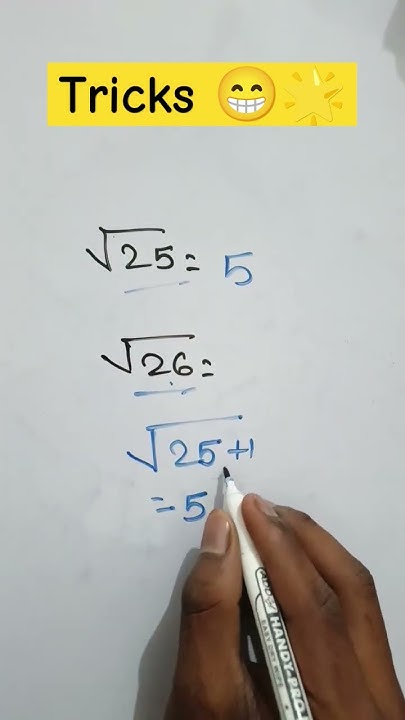 Tricks 😁🌟
√25 = 5
√26 =
√25+1
= 5
HANDY-PRO